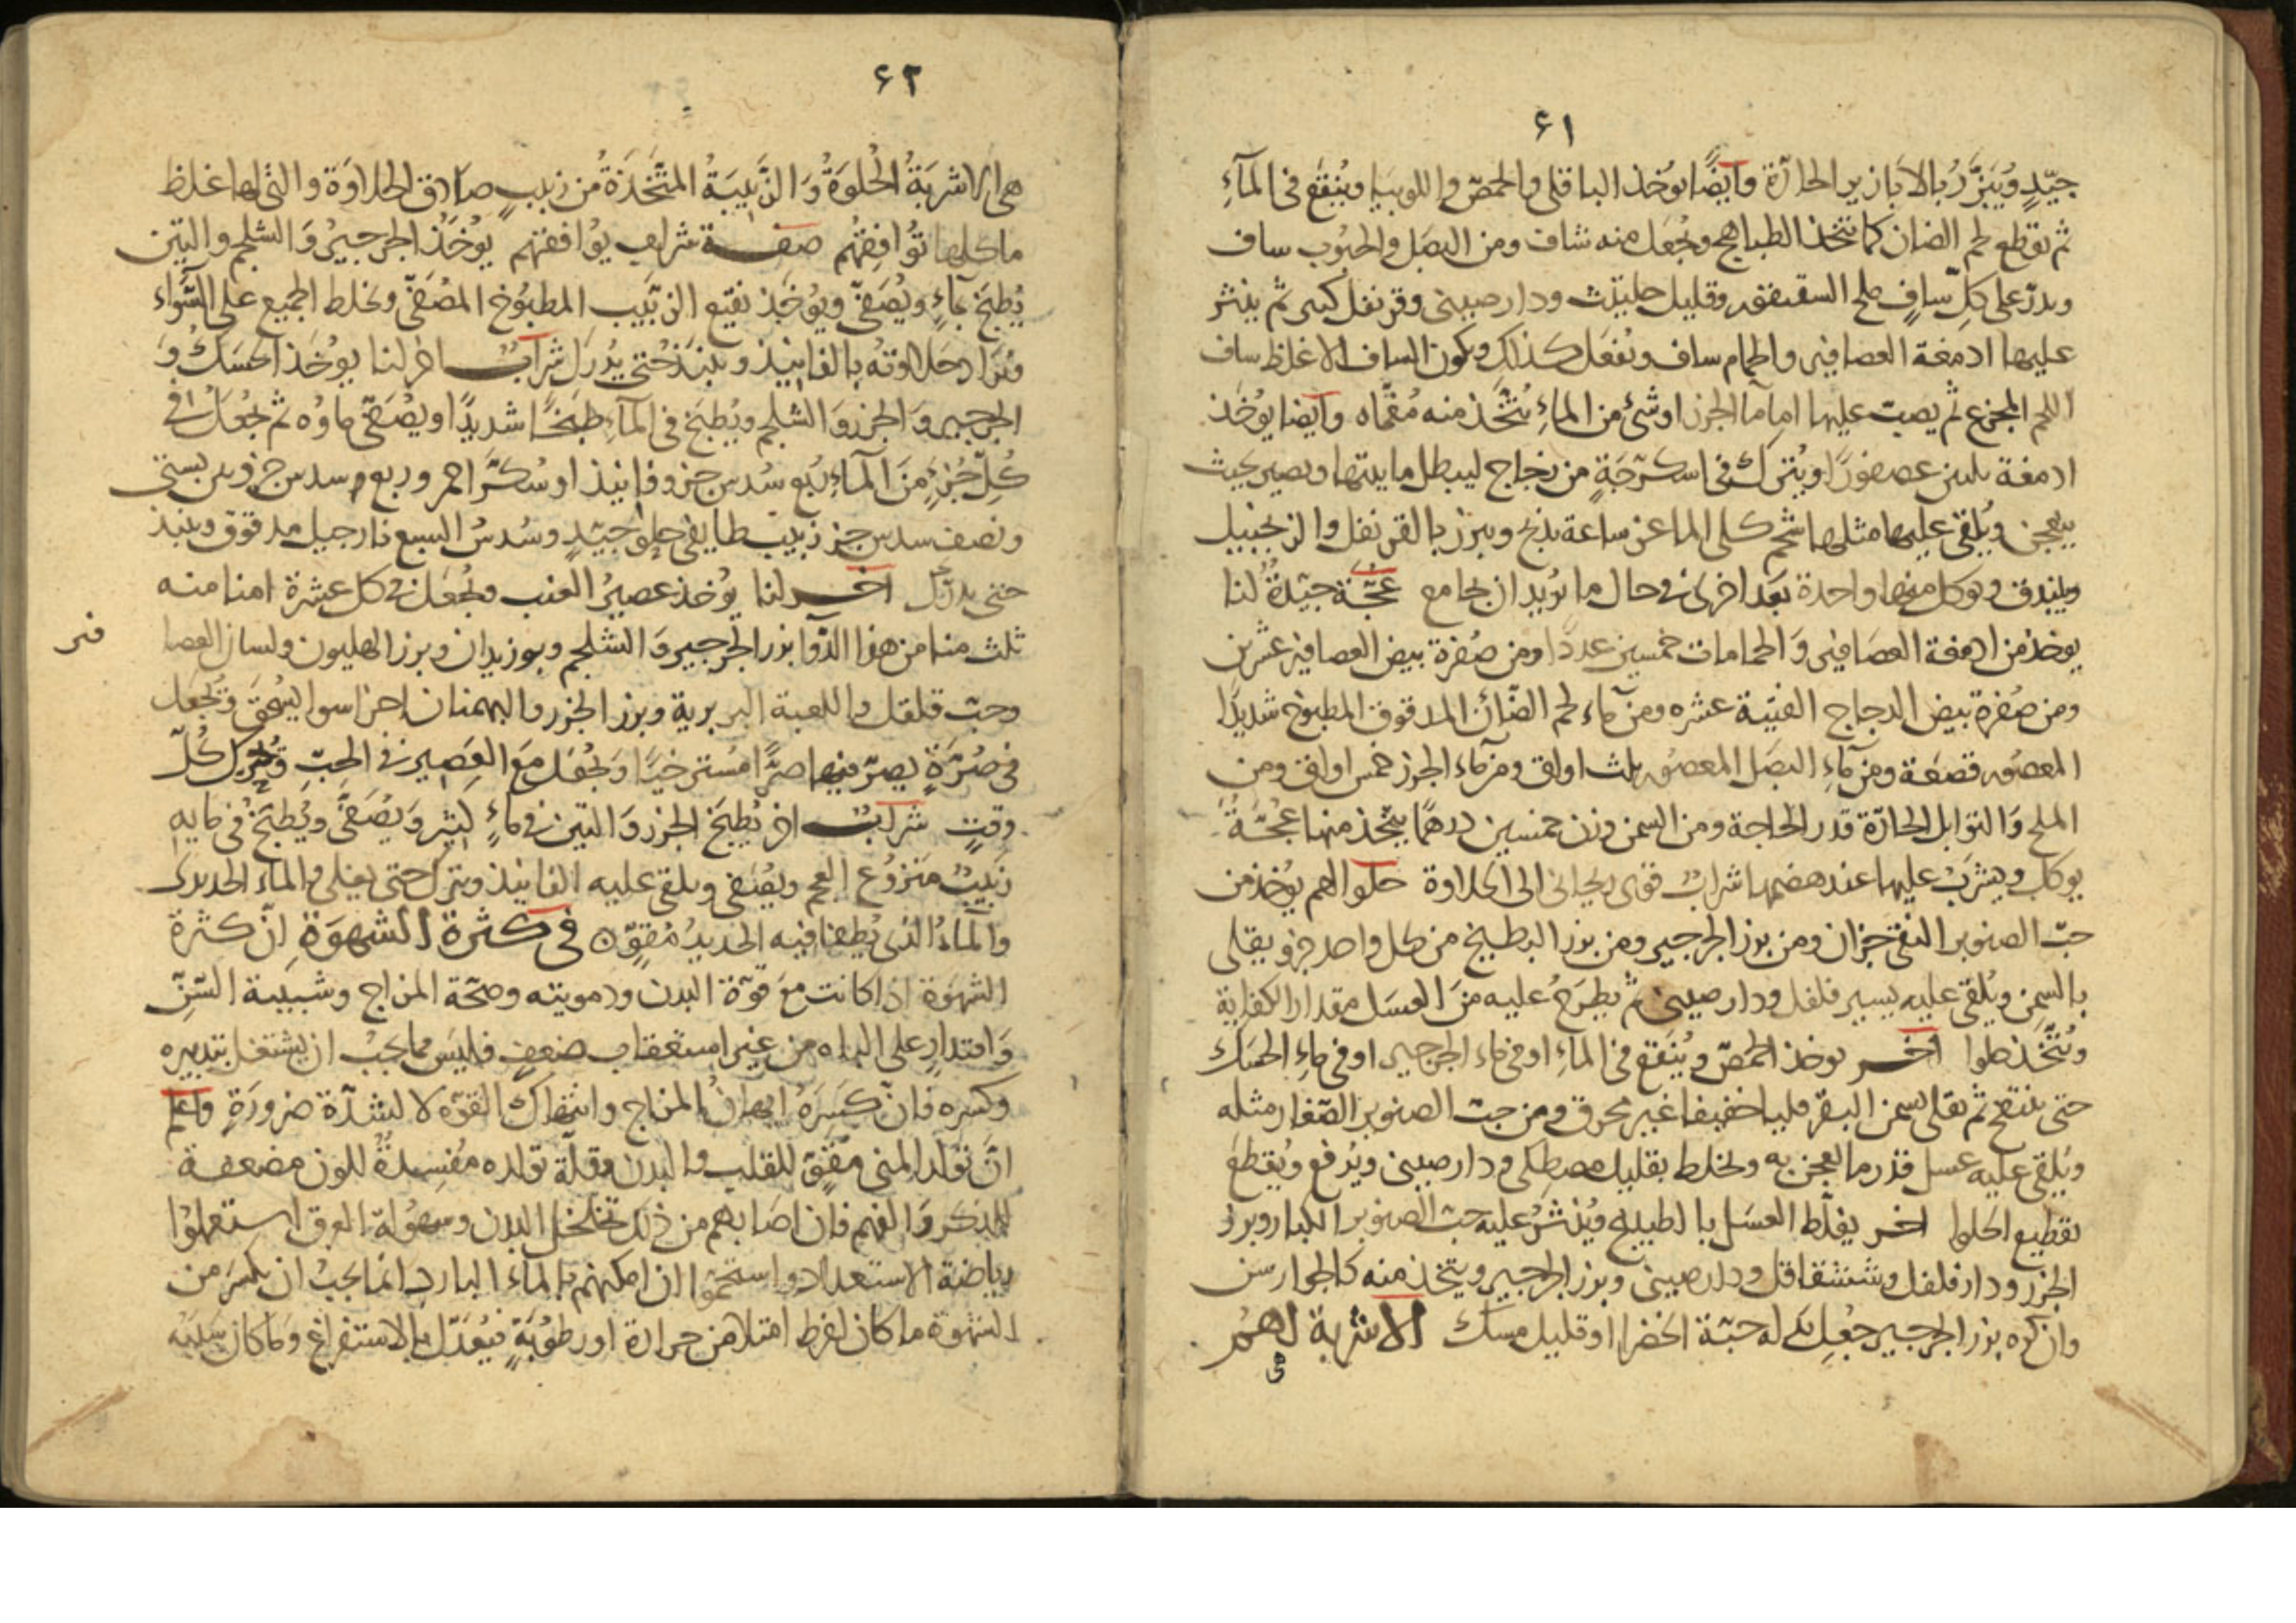 ٤١
جيّدٍ ويُبَزَّرُ بالابازير الحارّة وايضًا يوخذ الباقلى والحمصّ واللوبيا ويُنقع فى المآءِ
ثم يقطع لحم الضان كما تتخذ الطباهج ويُجعل منه شاف ومن البصَل والحبُوب ساف
ويذرّ على كلّ سافٍ ملح السقنقور وقليل حليتث ودارصينى وقرنفل كبير ثم ينثر
عليها ادمغة العصافير والحمام ساف ويُفعَل كذلك ويكون الساف الاغلظ ساف
اللحم المجزع ثم يصبّ عليها اما ما الجزر او شئ من الماءِ يُتّخذ منه مُغمّاه وايضا يوُخذ
ادمغة ثلثين عصفورًا ويُترك فى اسكرّجَةٍ من زجاج ليبطل مايتها ويصير بحيث
يبعجن ويُلقى عليها مثلها شحم كلى الماعز ساعة يذبح ويبزر بالقرنفل والزنجبيل
ويبندق ويوكل منها واحدة بَعَد اخرى فى حال ما يُريد ان يجامع عُجّة جيّدةٌ لنا
يوخذ من ادمغة العصَافير وَالحمامات خمسين عددًا ومن صُفرة بيض العصافير عشرين
ومن صُفرة بيض الدجاج الفتيّة عشره ومن مآء لحم الضّائن المدقوق المطبوخ شديدًا
المعصُور قصعَة ومن مآءِ البصَل المعصُور ثلث اواق ومن مآء الجزر خمس اواق ومن
الملح وَالتوابل الحارّة قدر الحاجة ومن السمن وزن خمسين درهمًا يتّخذ منها عُجّةٌ
يوكل ويشرَبْ عليها عند هضمها شرابٌ قوى ريحانى الى الحلاوة حلوا لهم يُوخذ من
حبّ الصنوبر النقى جزان ومن بزر الجرجير ومن بزر البطيخ من كل واحد جزو يقلى
بالسمن ويُلقى عليه يسير فلفل ودارصينى ثم يُطرَحُ عليه منَ العسَل مقدار الكفاية
ويُتّخَذ حلوا اخر يوخذ الحمصّ ويُنقع فى الماءِ او فى ماء الجرجير او فى ماءِ الحسَك
حتى ينتفخ ثم يقلى بسمن البقرَ قليا خفيفا غير محرق ومن حبّ الصنوبر الصّغار مثله
ويُلقى عليه عسل قدر ما يعجن به ويخلط بقليل مصطكى ودارصينى ويُرفع ويُقطعَ
تقطيع الحلوا اخر يغلّظ العسَل بالطبيخ ويُنثرُ عليه حبّ الصنوبر الكبار وبزر
الجزر ودارفلفل وشقاقل ودارصينى وبزر الجرجير ويتخذ منه كالجوارسن
وان كره بزر الجرجير جُعِل بدله حبّة الخضرا او قليل مسك الاشربة لهم
٤٢
هى الاشربَةُ الحُلوَةُ وَالزّبيبيَةُ المتّخذةُ من زبيبٍ صادق الحلاوَة والتى لها غلظ
ما كلها تُوافِقهُم صفة شراب يُوافقهم يُوخَذُ الجرجيرُ وَالشلجم والتين
يُطبَخ بماءٍ ويُصَفىّ ويُوخَذ نقيع الزّبَيب المطبُوخ المصُفىّ ويخلط الجميع على السّواء
ويُزاد حَلاوته بالفانيذ وينبَذ حُتى يُدرَك شراب اخر لنا يوُخَذ الحسَكُ وَ
الجرجير وَالجزر وَالشلجم ويُطبَخ فى المآءِ طَبخًا شديدًا ويصُفىّ ماوُه ثم يُجعَلُ فى
كُلّ جُزءٍ مِنَ المآءِ رُبع سُدس جزو فانيذ او سُكرّ احمر وربع وسدس جزو تين بستى
ونصف سدس جز زبيب طايفى حلو جيّدٍ وسُدسُ السبع نارجيل مدقوق وينبذ
حتى يدرك اخر لنا يُوخذ عصيرُ العنب ويُجعَل فى كل عشرة امنا منه
ثلث منا من هذا الدّوا بزر الجرجير وَالشلجم وبوزيدان وبرز الهليون ولسان العصا
فير
وحبّ قلقل واللعبة البربرية وبرز الجزر والبهمنان اجزا سوا يُسحق ويُجعَل
فى صُرّةٍ يصرّ فيها صرًّا مُسترخيًا وَيُجعَل مَعَ العَصير فى الحِبّ ويُحرّك كُلّ
وقتٍ شرابٌ اخر يُطبَخ الجزر وَالتين فى مَاءٍ كثير وَيُصَفىَّ ويُطبَخُ فى مايه
زبَيبٌ منزوُع العجم ويُصَفى ويلقى عليه الفانيذ ويترك حتى يغلى والماء الحديدى
وَالمآءُ الذى يُطفا فيه الحَديدُ مُقوّن فى كثرة الشهوَةِ انّ كثرة
الشهوَة اذا كانت مَع قوّة البدن ودمويته وصحّة المزاج وشبيبة السّنّ
وَاقتدارٍ على الباه من غير استعقاب ضعفٍ فليسَ مما يجبُ ان يشتغل بتدبيره
وكسره فانّ كسَرَهُ ايهانُ المزاج وانتهاك القوّه لا لشدّة ضرورَةٍ واعلم
انّ تولّد المنى مقّوٍ للقلب والبدن وقلّة تولده مفُسِدةٌ للون مضعفة
للذكر وَالفهم فان اصَابهم من ذلك تخلخل البدن وسهُولة العرق استعملوُا
رياضة الاستعداد واستحمّوا ان امكنهم بالماء البارد انما يجبُ ان يكسَرَ من
الشهوَة ما كان لفرط امتلا من حرارة او رطوبَةٍ فيُعَدّل بالاستفراغ وَما كان سَبَبُه